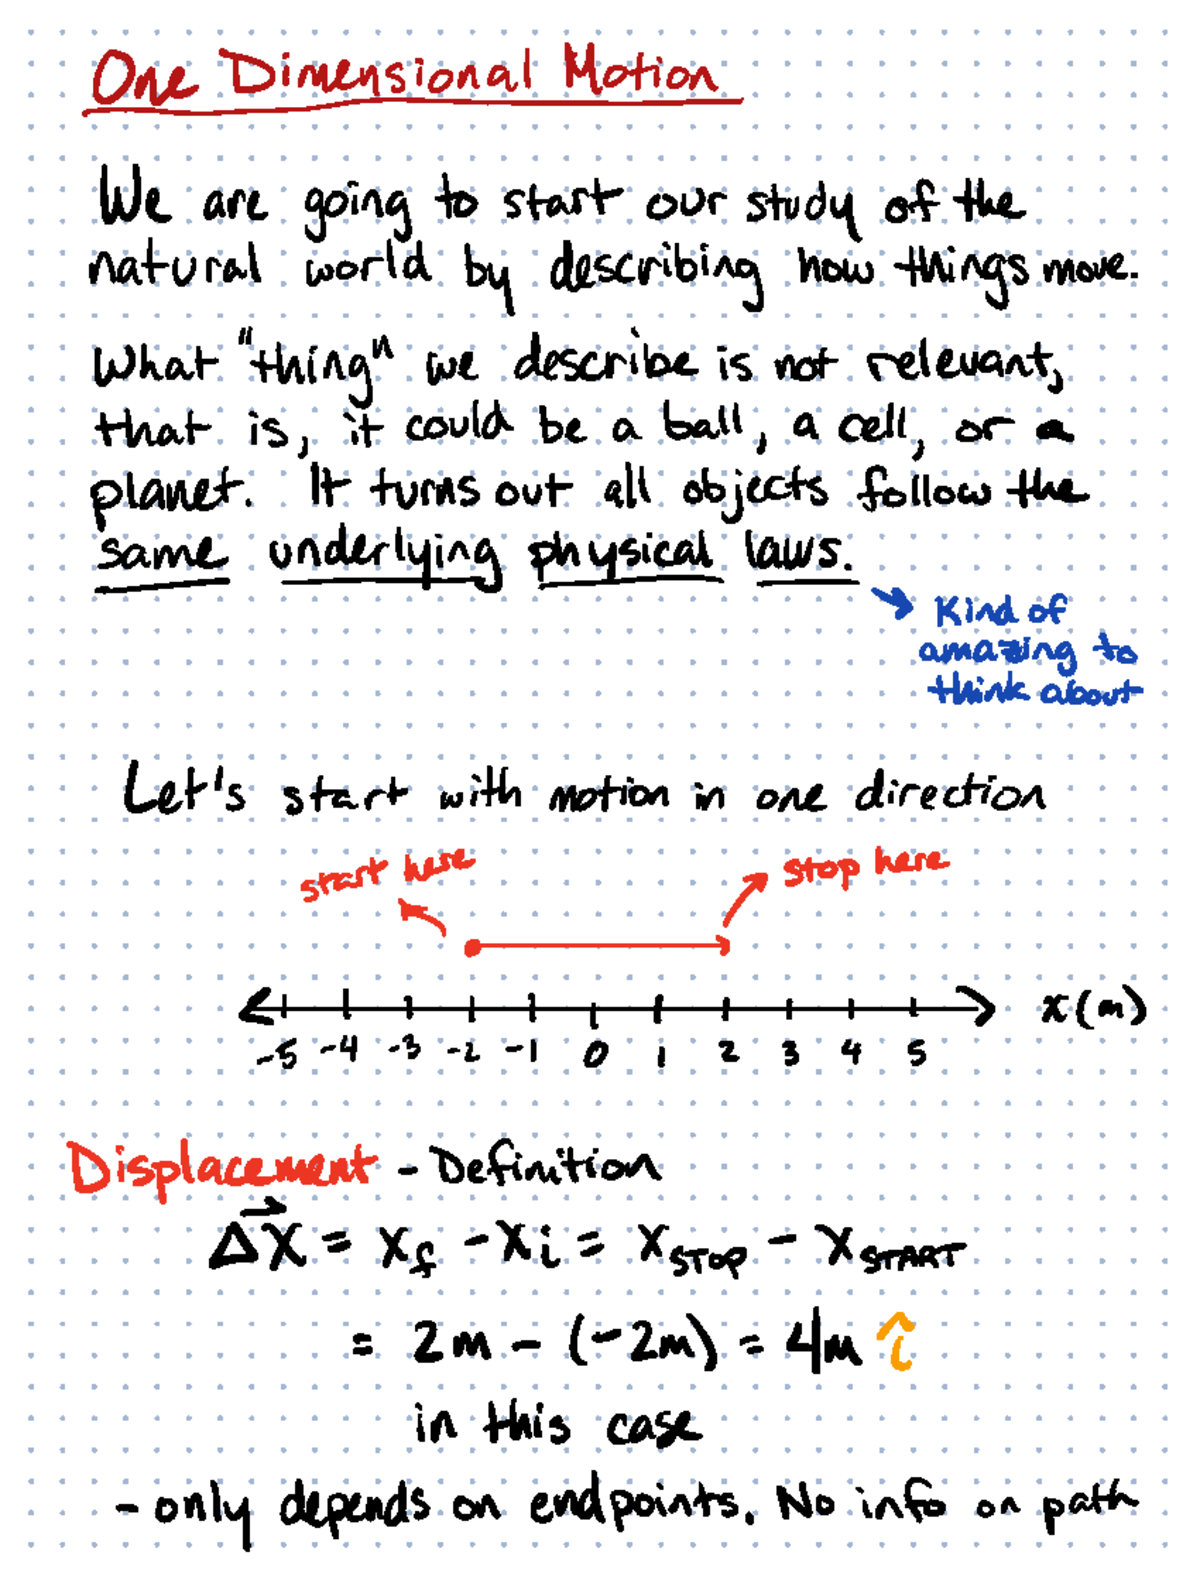 One Dimensional Motion
We are going to start our study of the
natural world by describing how things move.
What "thing" we describe is not relevant,
that is, it could be a ball, a cell, or a
planet. It turns out all objects follow the
same underlying physical laws.
Kind of
amazing to
think about
Let's start with motion in one direction
start here
stop here
-5 -4 -3 -2 -1 0 1 2 3 4 5
x (m)
Displacement - Definition
Δx⃗ = x_f - x_i = x_STOP - x_START
= 2m - (-2m) = 4m î
in this case
- only depends on endpoints. No info on path